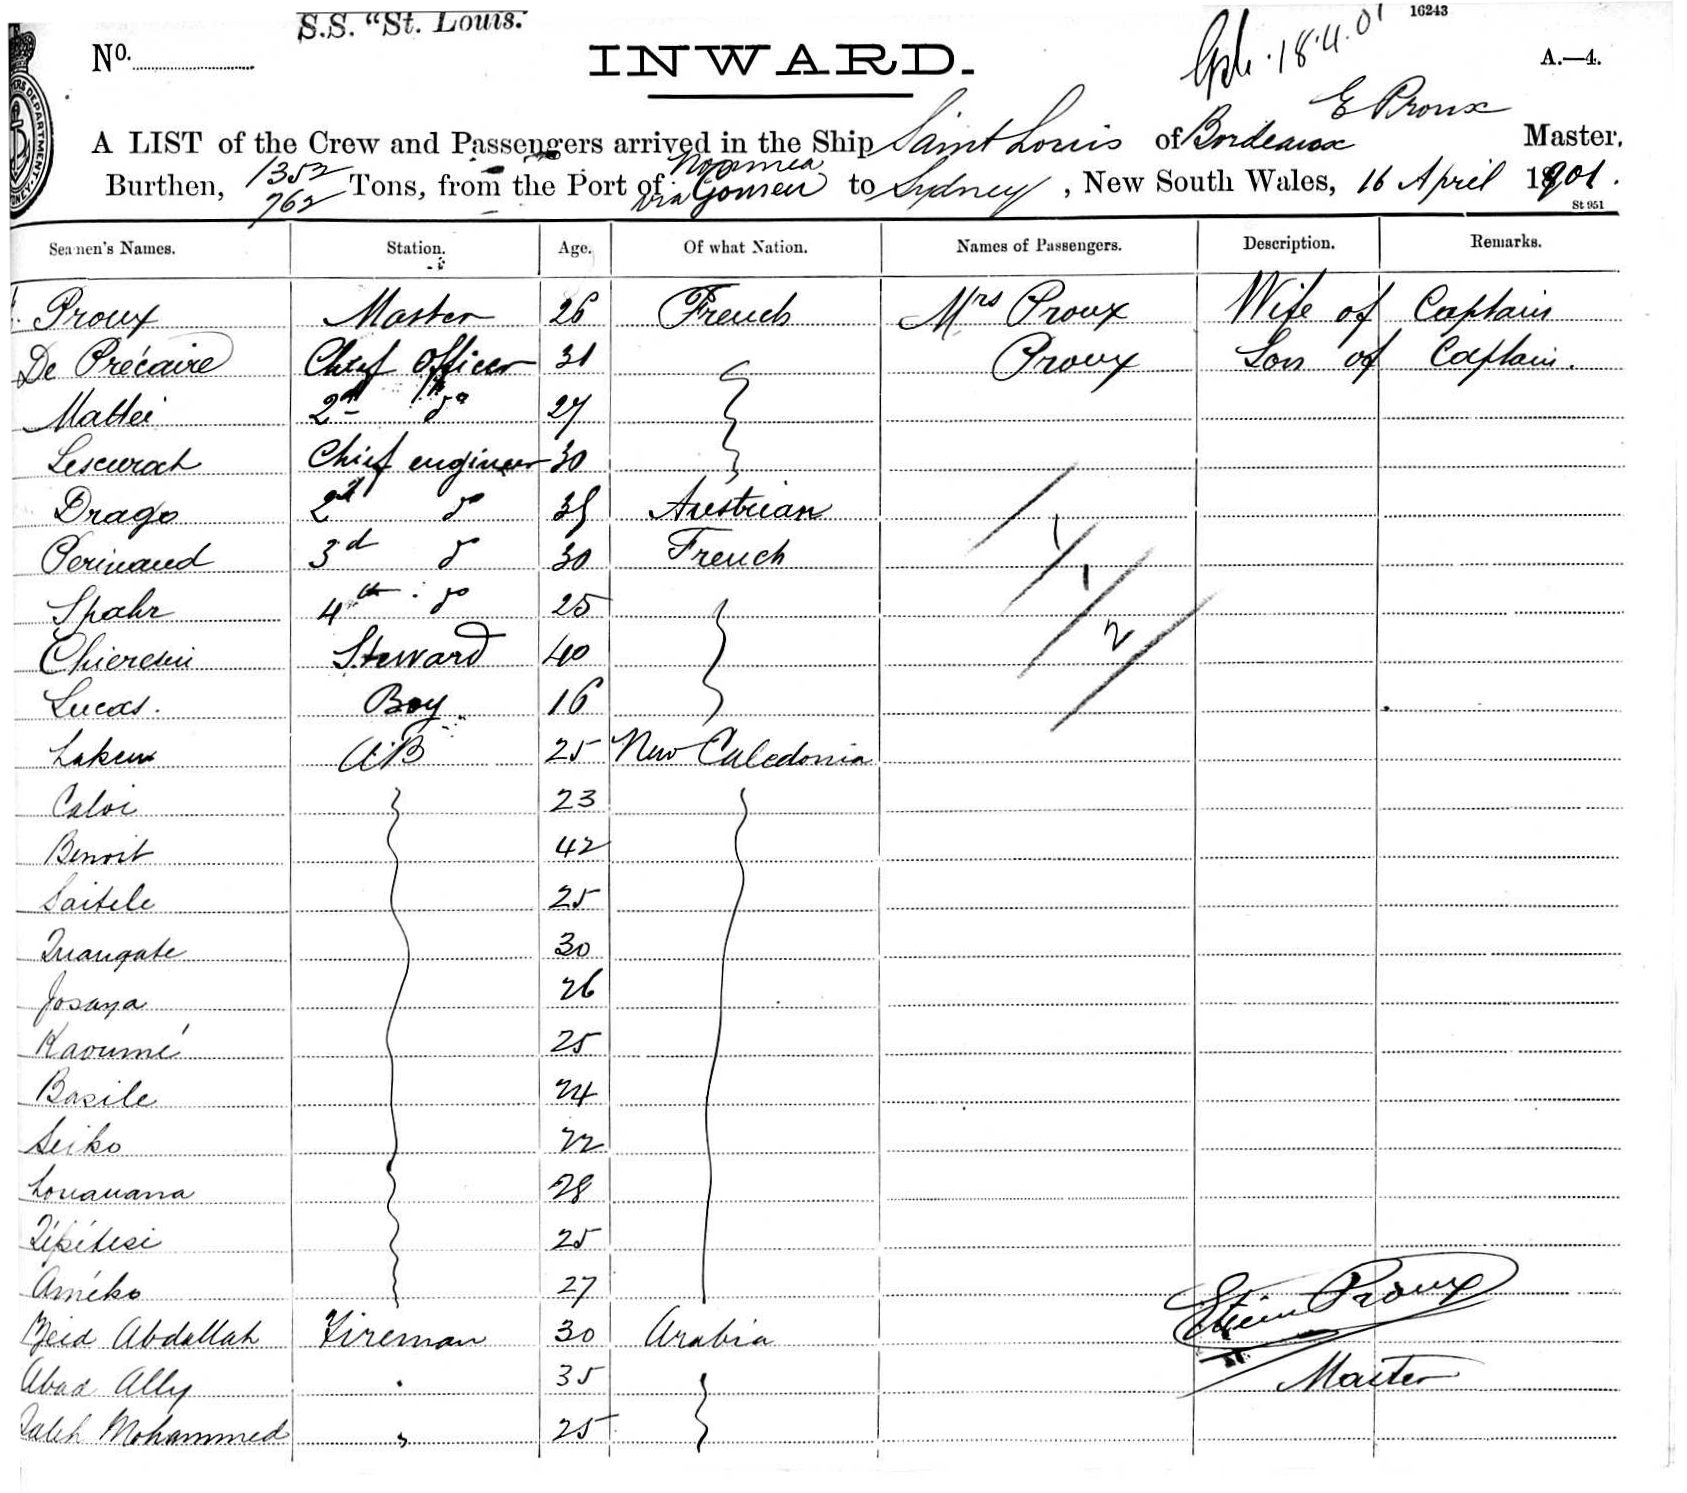 S.S. "St. Louis."
16243
No.
INWARD.
18.4.01
A.—4.
E Proux
A LIST of the Crew and Passengers arrived in the Ship Saint Louis of Bordeaux Master,
1352 Noumea
Burthen, 762 Tons, from the Port of via Gomen to Sydney, New South Wales, 16 April 1901.
St 951
Seamen's Names. Station. Age. Of what Nation. Names of Passengers. Description. Remarks.
Proux Master 26 French Mrs Proux Wife of Captain
De Précaire Chief Officer 31 Proux Son of Captain.
Mattei 2nd do 27
Chief engineer 30
Drago 2d do 35 Austrian
3d do 30 French
1
Spahr 4th do 25
1
Steward 40
2
Lucas. Boy 16
AB 25 New Caledonia
Caloi 23
Benoit 42
Saitele 25
30
Josaya 26
Kaoumé 25
Basile 24
Seiko 22
Louauana 28
25
Améko 27
Proux
Zeid Abdallah Fireman 30 Arabia
Abad Ally 35
Master
Saleh Mohammed 25